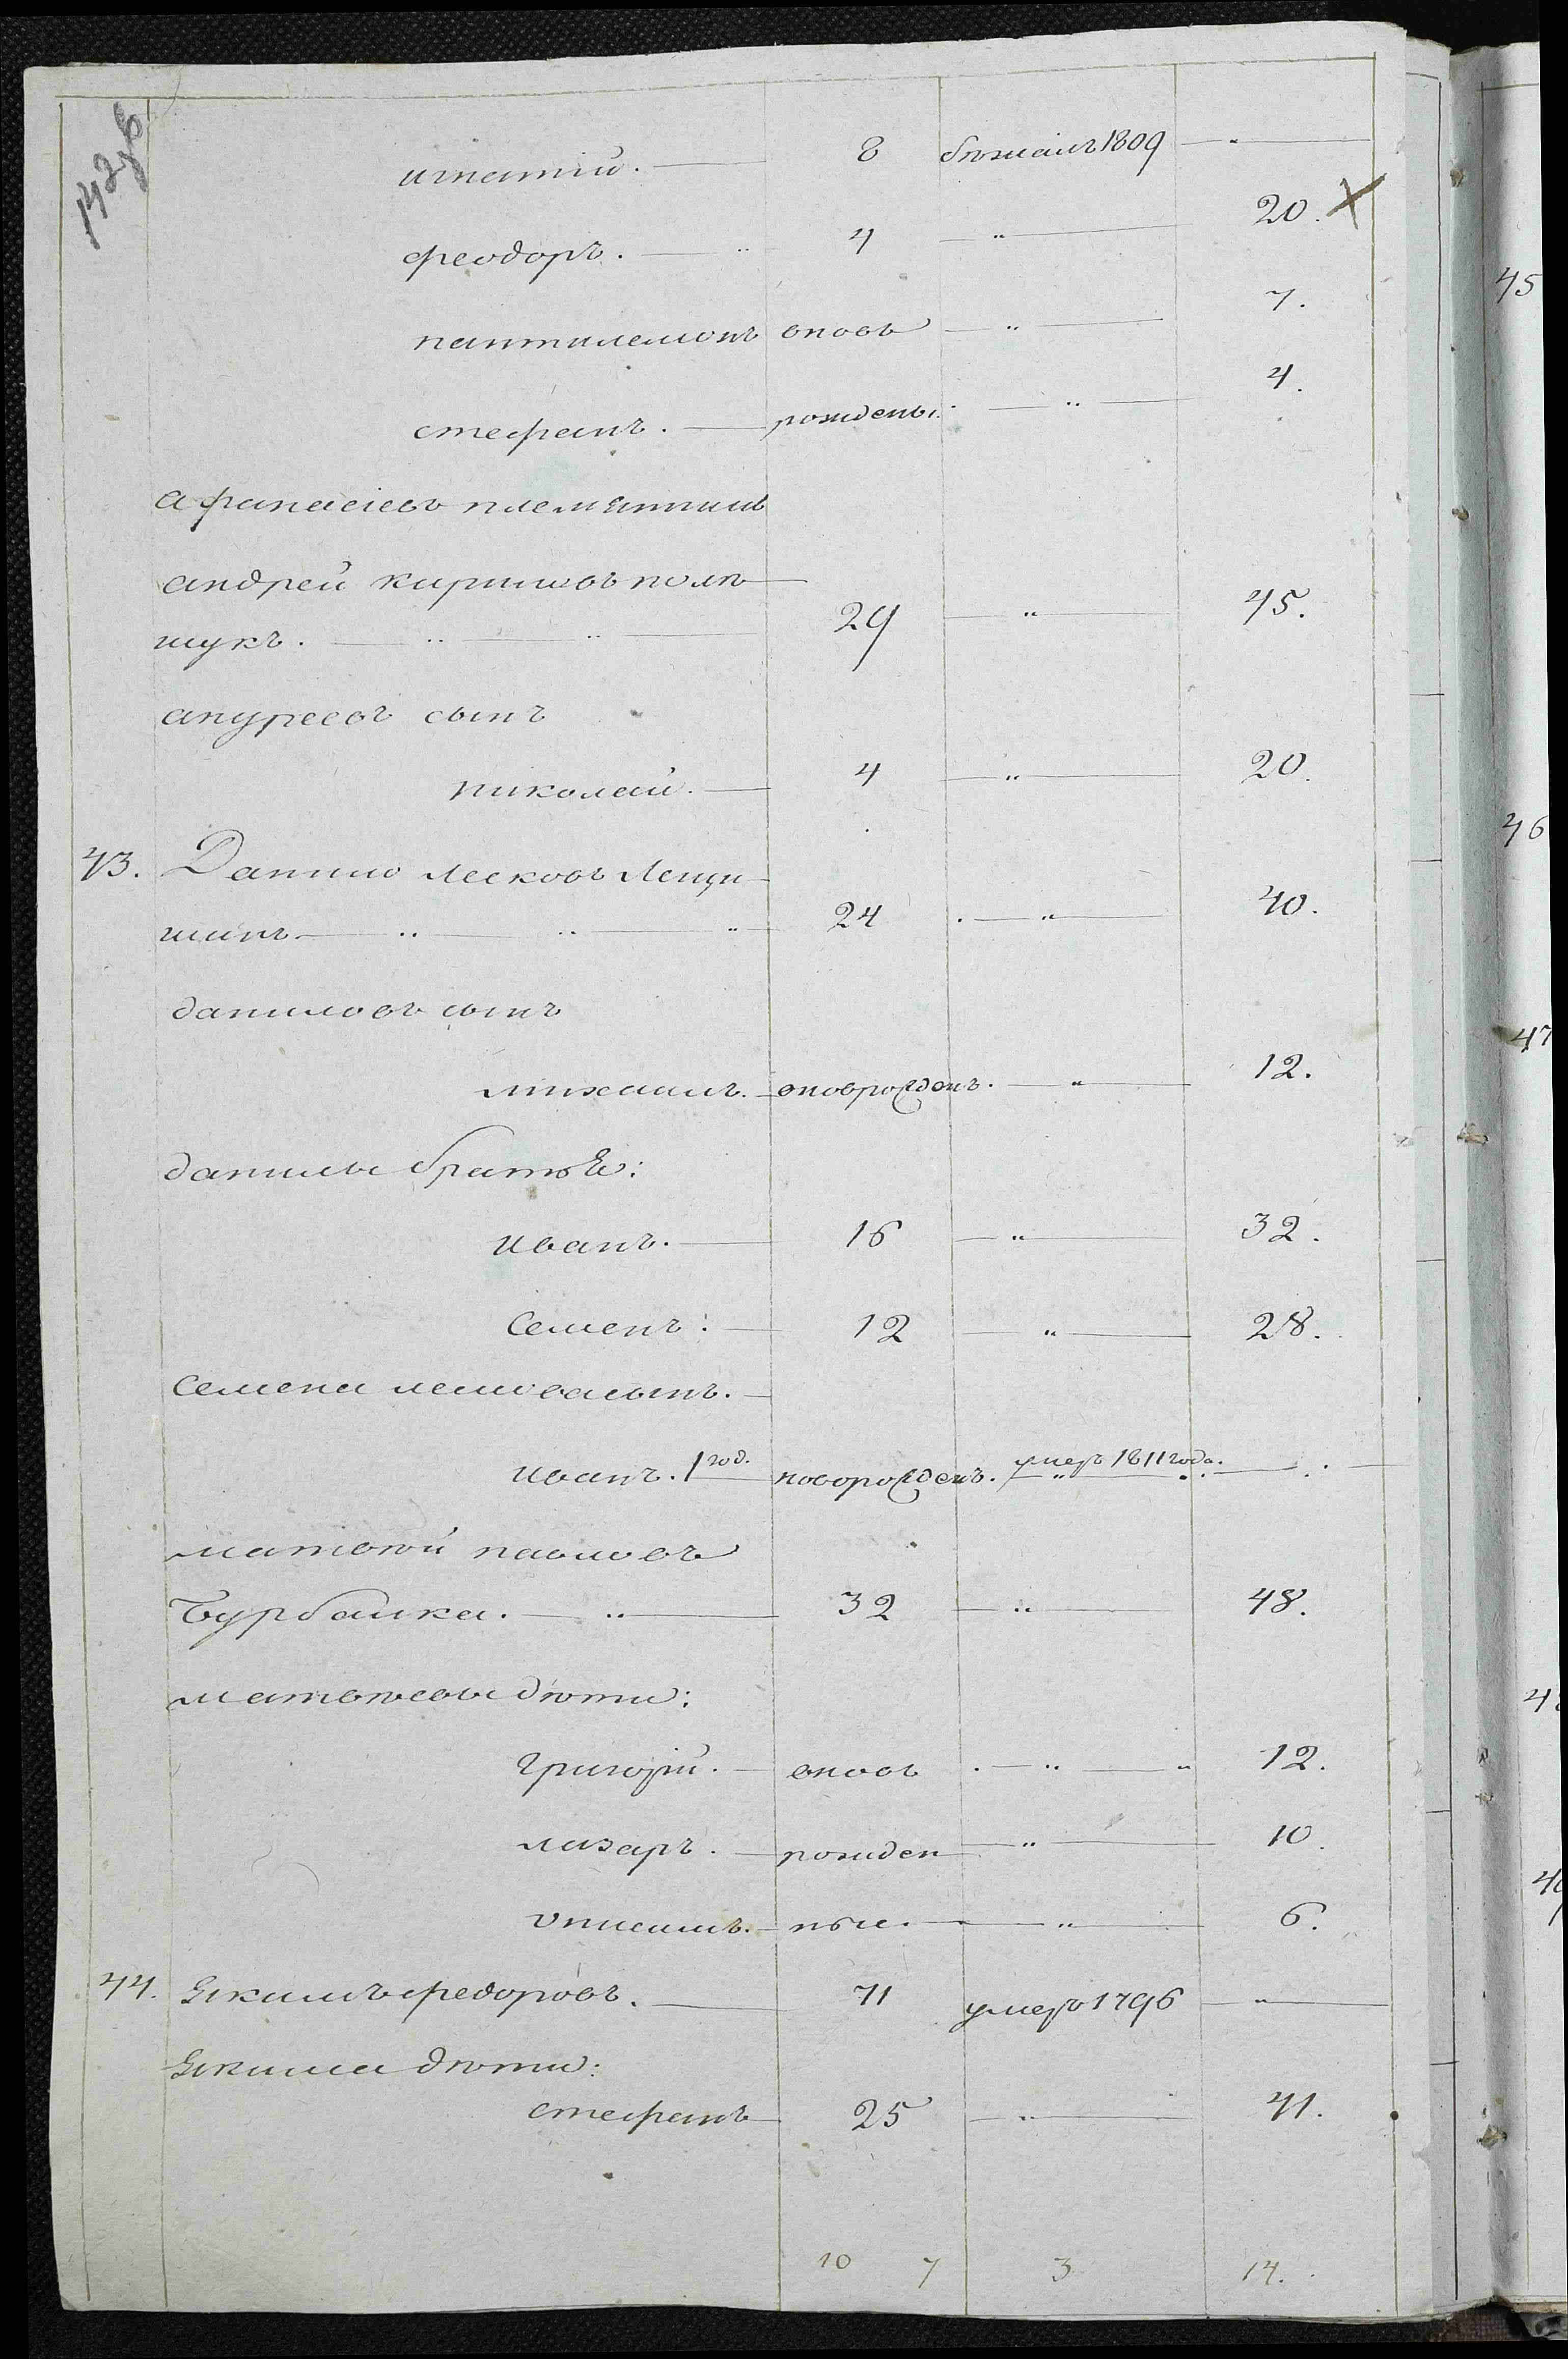 142об
игнатій. — 8 бѣжалъ 1809 — " —
феодоръ. — " 4 — " — 20. X
пантилемонъ вновь — " — 7.
стефанъ. — рожденыи. — " — 4.
афанасіевъ племянникъ
андрей кириловъ полѣ
щукъ. — " — " — 29 — " — 45.
андреевъ сынъ
николай. — 4 — " — 20.
43. Данило лесковъ Лещи
шинъ — " — " — " 24 — " — 40.
даниловъ сынъ
михаилъ. — вноврожденъ. — " — 12.
данилы братья:
Иванъ. — 16 — " — 32.
Семенъ: — 12 — " — 28.
семена
Иванъ. 1 год. новорожденъ. умеръ 1811 года.
матвѣй павловъ
Бурбайка. — " — 32 — " — 48.
матвѣевы дѣти:
григорій. — вновь — " — " 12.
лазаръ. — рожден — " — 10.
онисимъ. — ные. — " — 6.
44. Якимъ федоровъ. — 71 умеръ 1796 — " —
Якима дѣти:
стефанъ — 25 — " — 41.
10 7 3 14.
45
46
47